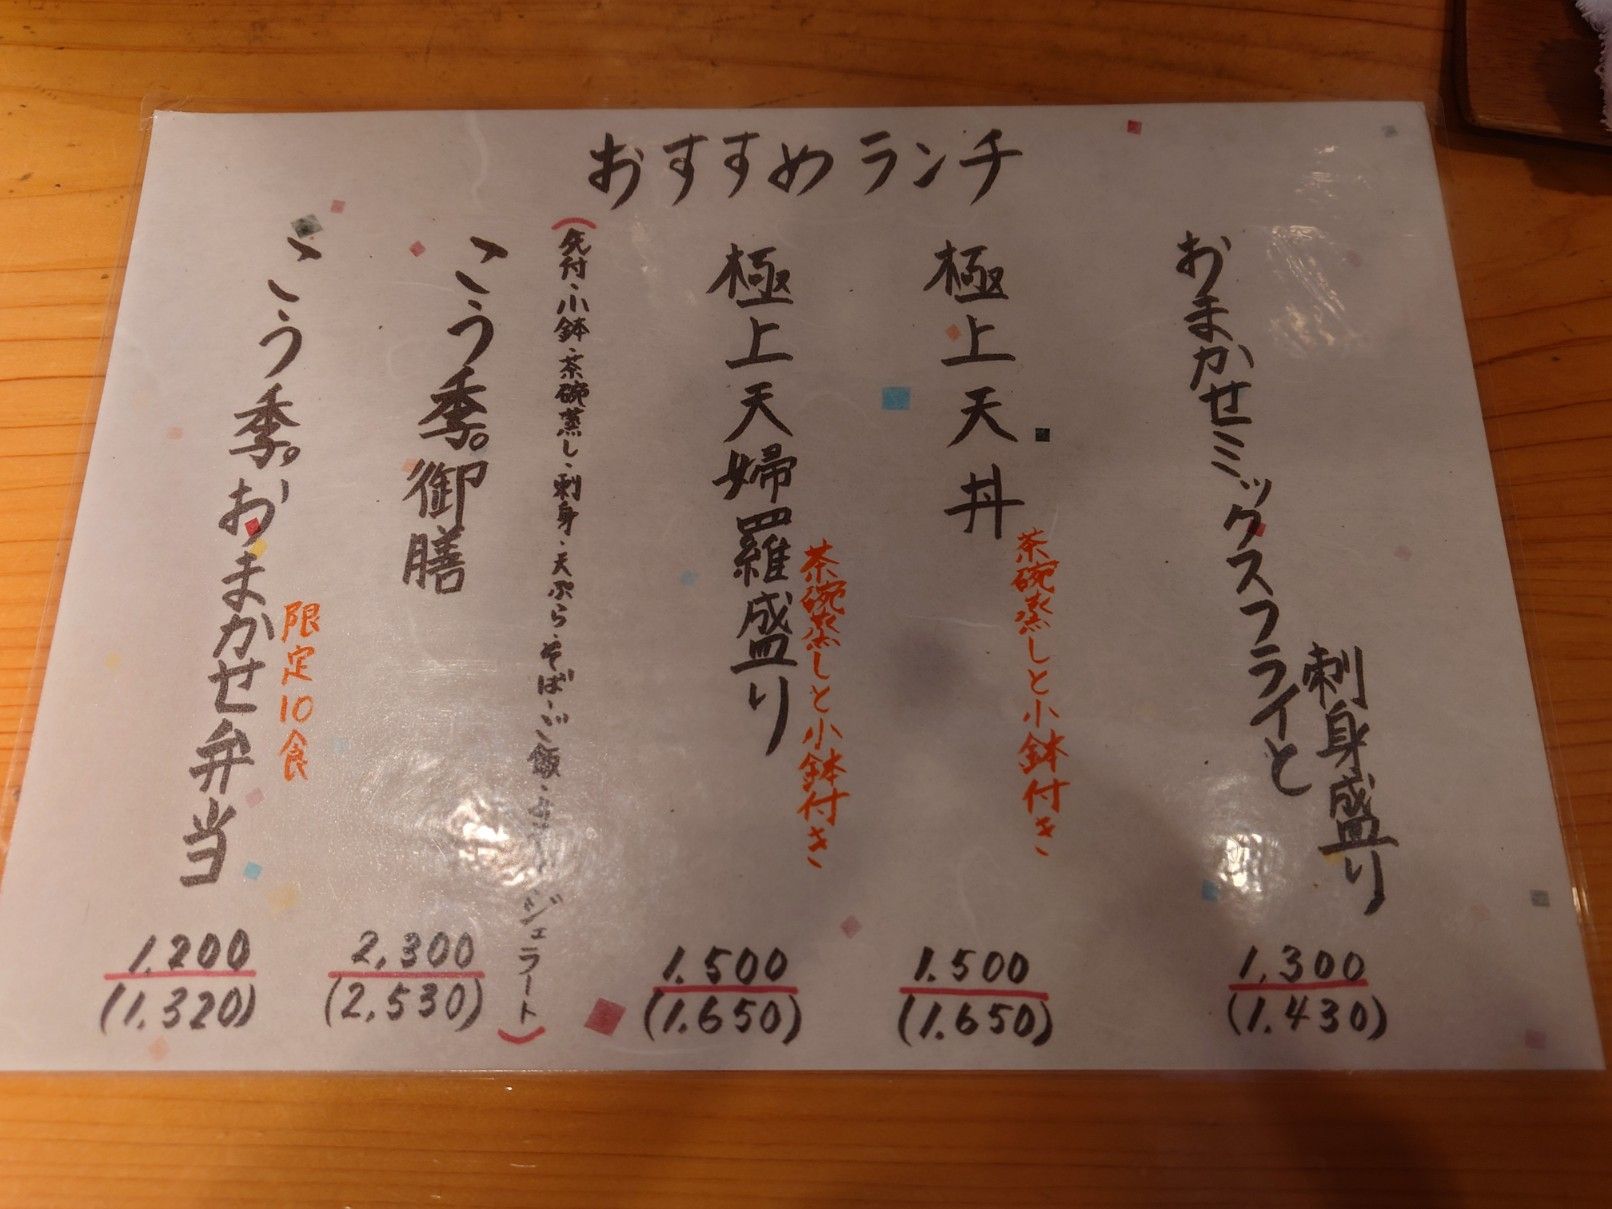 おすすめランチ
おまかせミックスフライと
刺身盛り
1,300
(1,430)
極上天丼
茶碗蒸しと小鉢付き
1,500
(1,650)
極上天婦羅盛り
茶碗蒸しと小鉢付き
1,500
(1,650)
こう季。御膳
(先付・小鉢・茶碗蒸し・刺身・天ぷら・そば・ご飯・ジェラート)
2,300
(2,530)
こう季。おまかせ弁当
限定10食
1,200
(1,320)